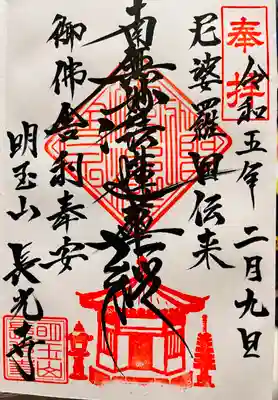 奉拝
令和五年二月九日
尼婆羅国伝来
南無妙法蓮華経
御佛舎利奉安
明玉山
長光寺